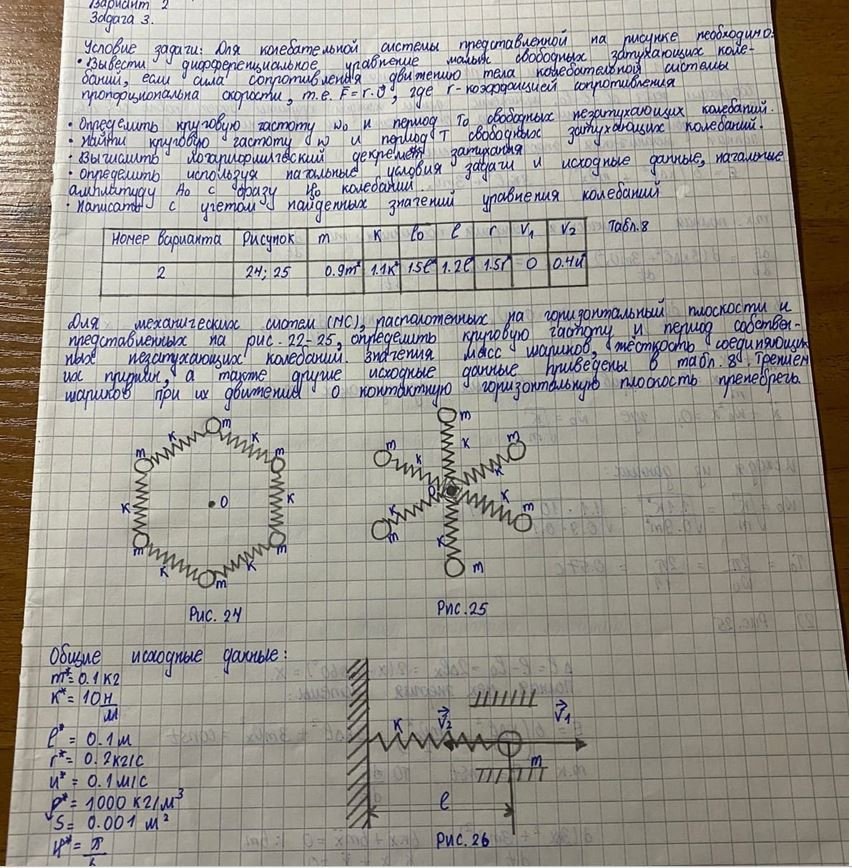 Вариант 2
Задача 3.
Условие задачи: Для колебательной системы представленной на рисунке необходимо:
• Вывести дифференциальное уравнение малых свободных затухающих коле-
баний, если сила сопротивления движению тела колебательной системы
пропорциональна скорости, т.е. F = r·υ, где r-коэффициент сопротивления
• Определить круговую частоту w₀ и период T₀ свободных незатухающих колебаний.
• Найти круговую частоту w и период T свободных затухающих колебаний.
• Вычислить логарифмический декремент затухания
• Определить используя начальные условия задачи и исходные данные, начальные
амплитуду A₀ с фразу φ₀ колебаний.
• Написать с учетом найденных значений уравнения колебаний
Номер варианта Рисунок m к l₀ l r V₁ V₂ Табл.8
2 24; 25 0.9m* 1.1к* 1.5l* 1.2l* 1.5r* 0 0.4u*
Для механических систем (МС), расположенных на горизонтальный плоскости и
представленных на рис. 22-25, определить круговую частоту и период собствен-
ных незатухающих колебаний. Значения масс шариков, жесткость соединяющих
их пружин, а также другие исходные данные приведены в табл. 8. Трением
шариков при их движении о контактную горизонтальную плоскость пренебречь.
m
к к
m m
к O к
m m
к к
m
Рис. 24
m
к
m m
к к
O
к к
m к m
m
Рис. 25
Общие исходные данные:
m* = 0.1 кг
к* = 10 н/м
l* = 0.1 м
r* = 0.2 кг/с
u* = 0.1 м/с
ρ* = 1000 кг/м³
S = 0.001 м²
к V₂ V₁
m
l
Рис. 26